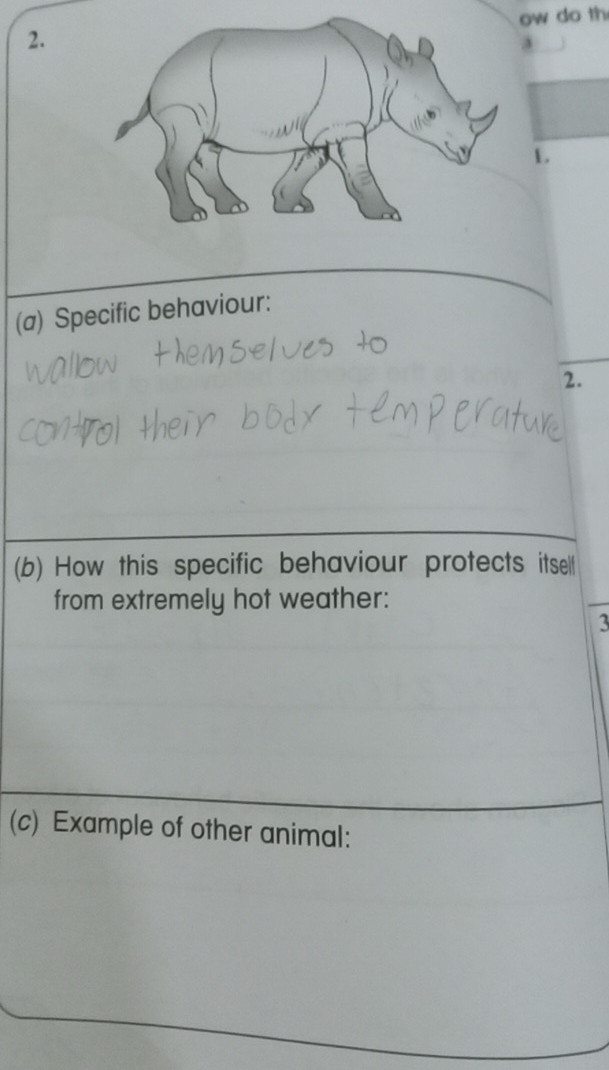 2.
ow do th
1.
(a) Specific behaviour:
wallow themselves to
2.
control their body temperature
(b) How this specific behaviour protects itself
from extremely hot weather:
3
(c) Example of other animal: